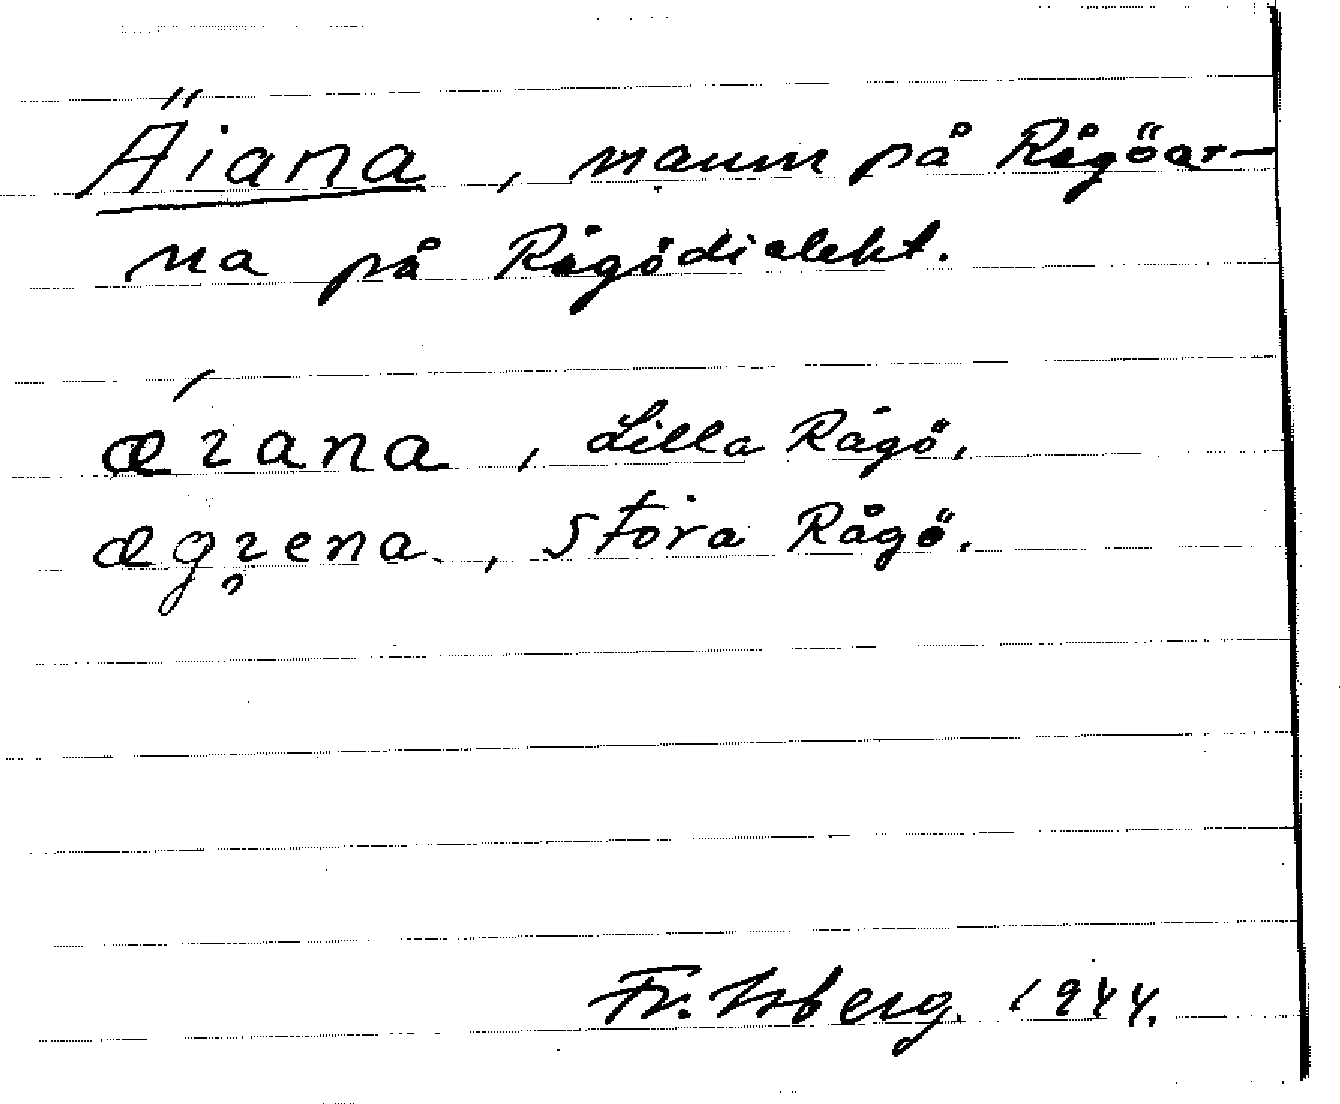 Äiana, namn på Rågöar-
na på Rågödialekt.
ǽɿana, Lilla Rågö.
ægɿena, Stora Rågö.
Fr. Isberg. 1944.